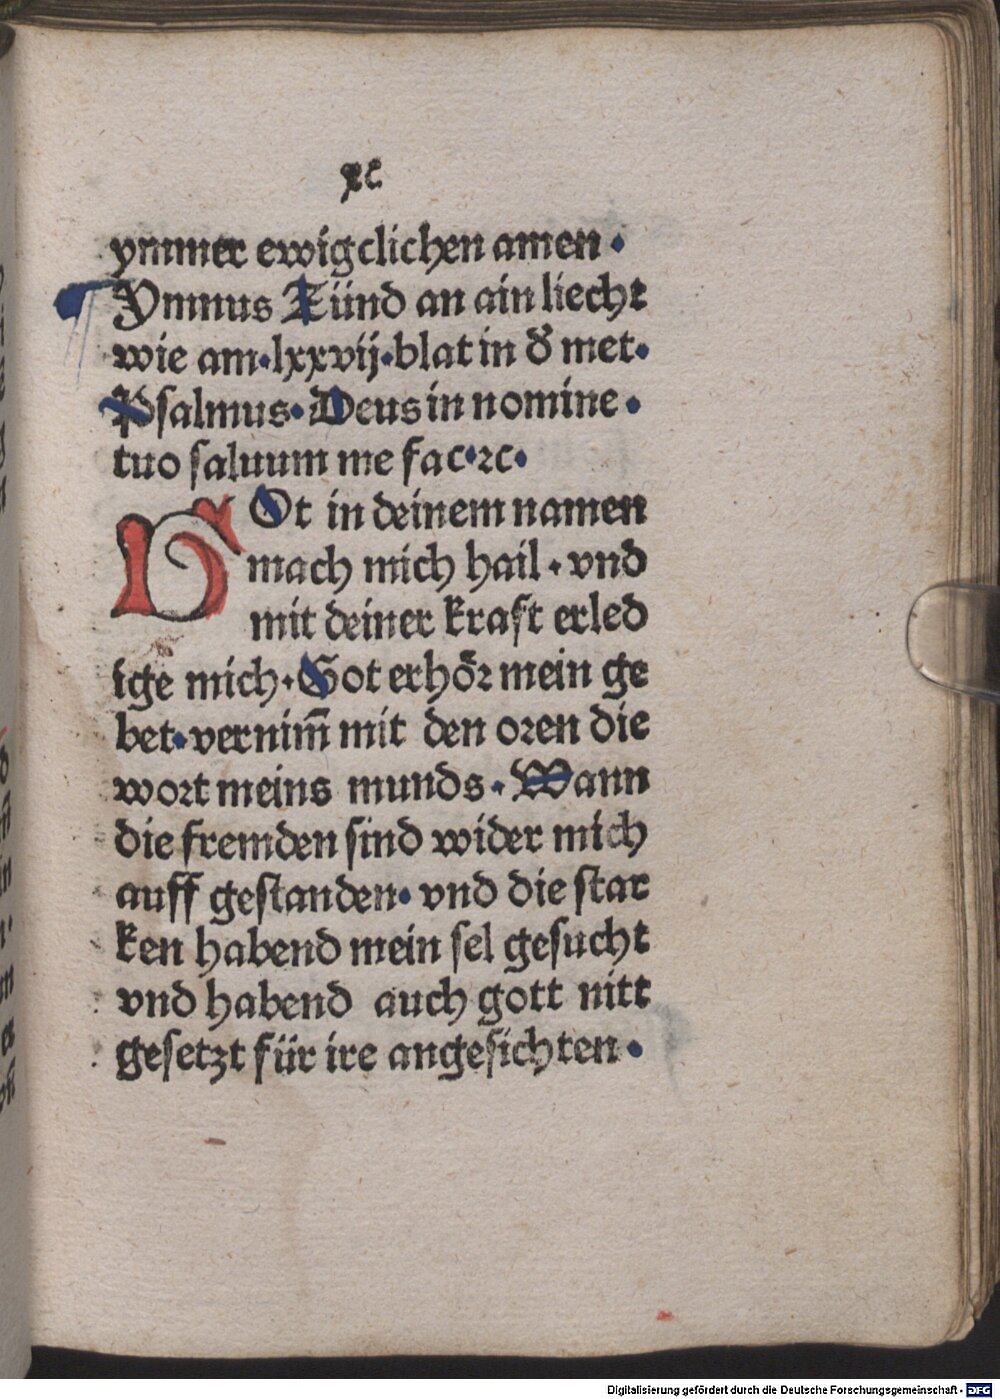 xc
ymmer ewigclichen amen·
Ymnus Zünd an ain liecht
wie am·lxxvij·blat in d̕ met·
Psalmus·Deus in nomine·
tuo saluum me fac·ꝛc·
GOt in deinem namen
mach mich hail·vnd
mit deiner kraft erled
ige mich·Got erhȫꝛ mein ge
bet·vernim̄ mit den oꝛen die
woꝛt meins munds·Wann
die fremden sind wider mich
auff gestanden·vnd die star
ken habend mein sel gesucht
vnd habend auch gott nitt
gesetzt für ire angesichten·
Digitalisierung gefördert durch die Deutsche Forschungsgemeinschaft - DFG